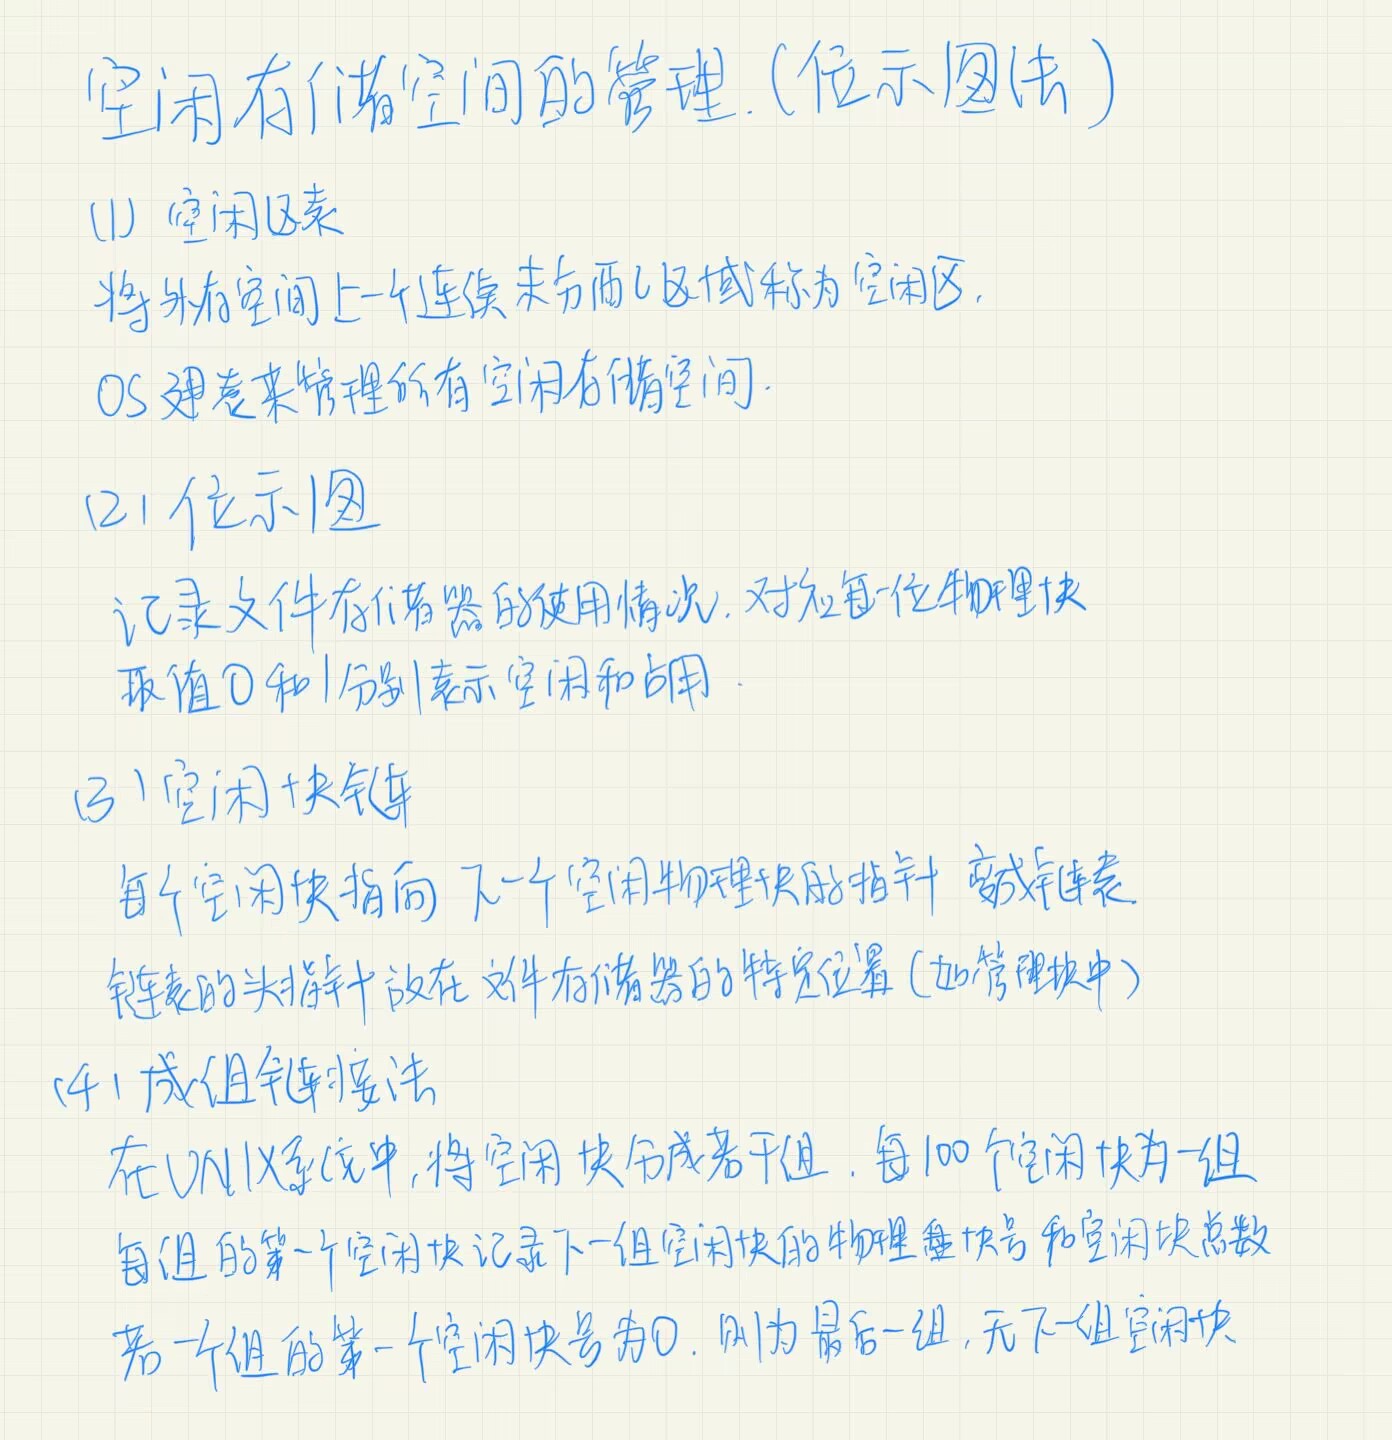 空闲存储空间的管理.(位示图法)
(1) 空闲区表
将外存空间上一个连续未分配区域称为空闲区,
OS建表来管理所有空闲存储空间.
(2) 位示图
记录文件存储器的使用情况, 对应每一位物理块
取值0和1分别表示空闲和占用.
(3) 空闲块链
每个空闲块指向 下一个空闲物理块的指针 变成链表.
链表的头指针放在 文件存储器的特定位置(如管理块中)
(4) 成组链接法
在UNIX系统中,将空闲块分成若干组, 每100个空闲块为一组
每组的第一个空闲块记录下一组空闲块的物理盘块号和空闲块总数
若一个组的第一个空闲块号为0, 则为最后一组,无下一组空闲块